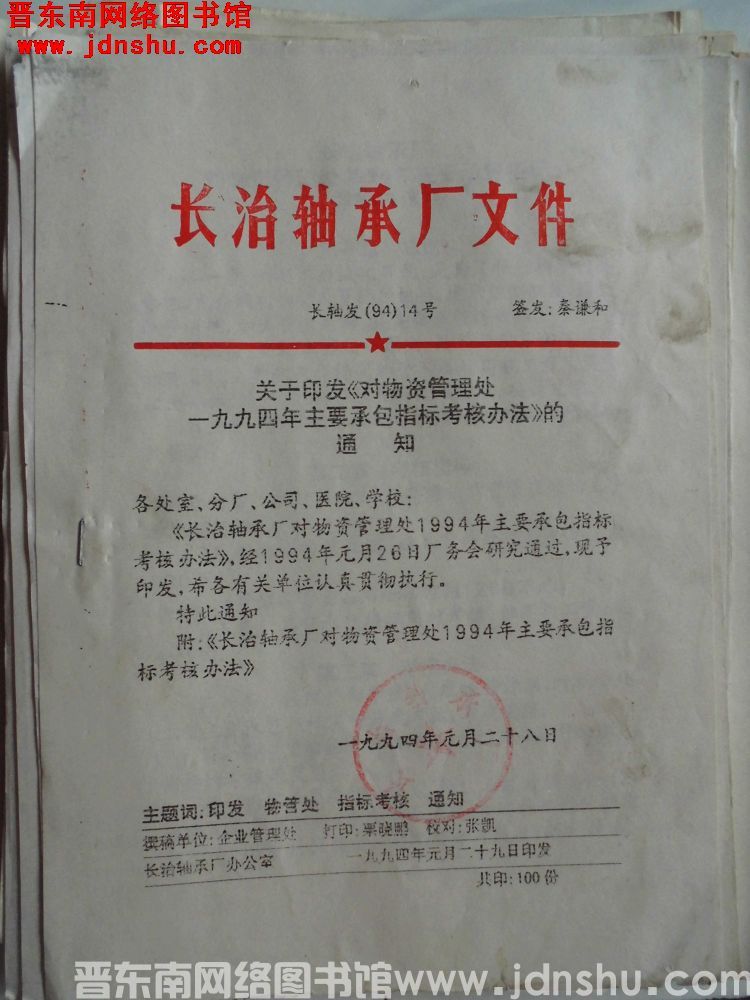 晋东南网络图书馆
www.jdnshu.com
长治轴承厂文件
长轴发(94)14号 签发:秦谦和
关于印发《对物资管理处
一九九四年主要承包指标考核办法》的
通 知
各处室、分厂、公司、医院、学校:
《长治轴承厂对物资管理处1994年主要承包指标
考核办法》,经1994年元月26日厂务会研究通过,现予
印发,希各有关单位认真贯彻执行。
特此通知
附:《长治轴承厂对物资管理处1994年主要承包指
标考核办法》
一九九四年元月二十八日
主题词:印发 物管处 指标考核 通知
撰稿单位:企业管理处 打印:栗晓鹏 校对:张凯
长治轴承厂办公室 一九九四年元月二十九日印发
共印:100份
晋东南网络图书馆www.jdnshu.com